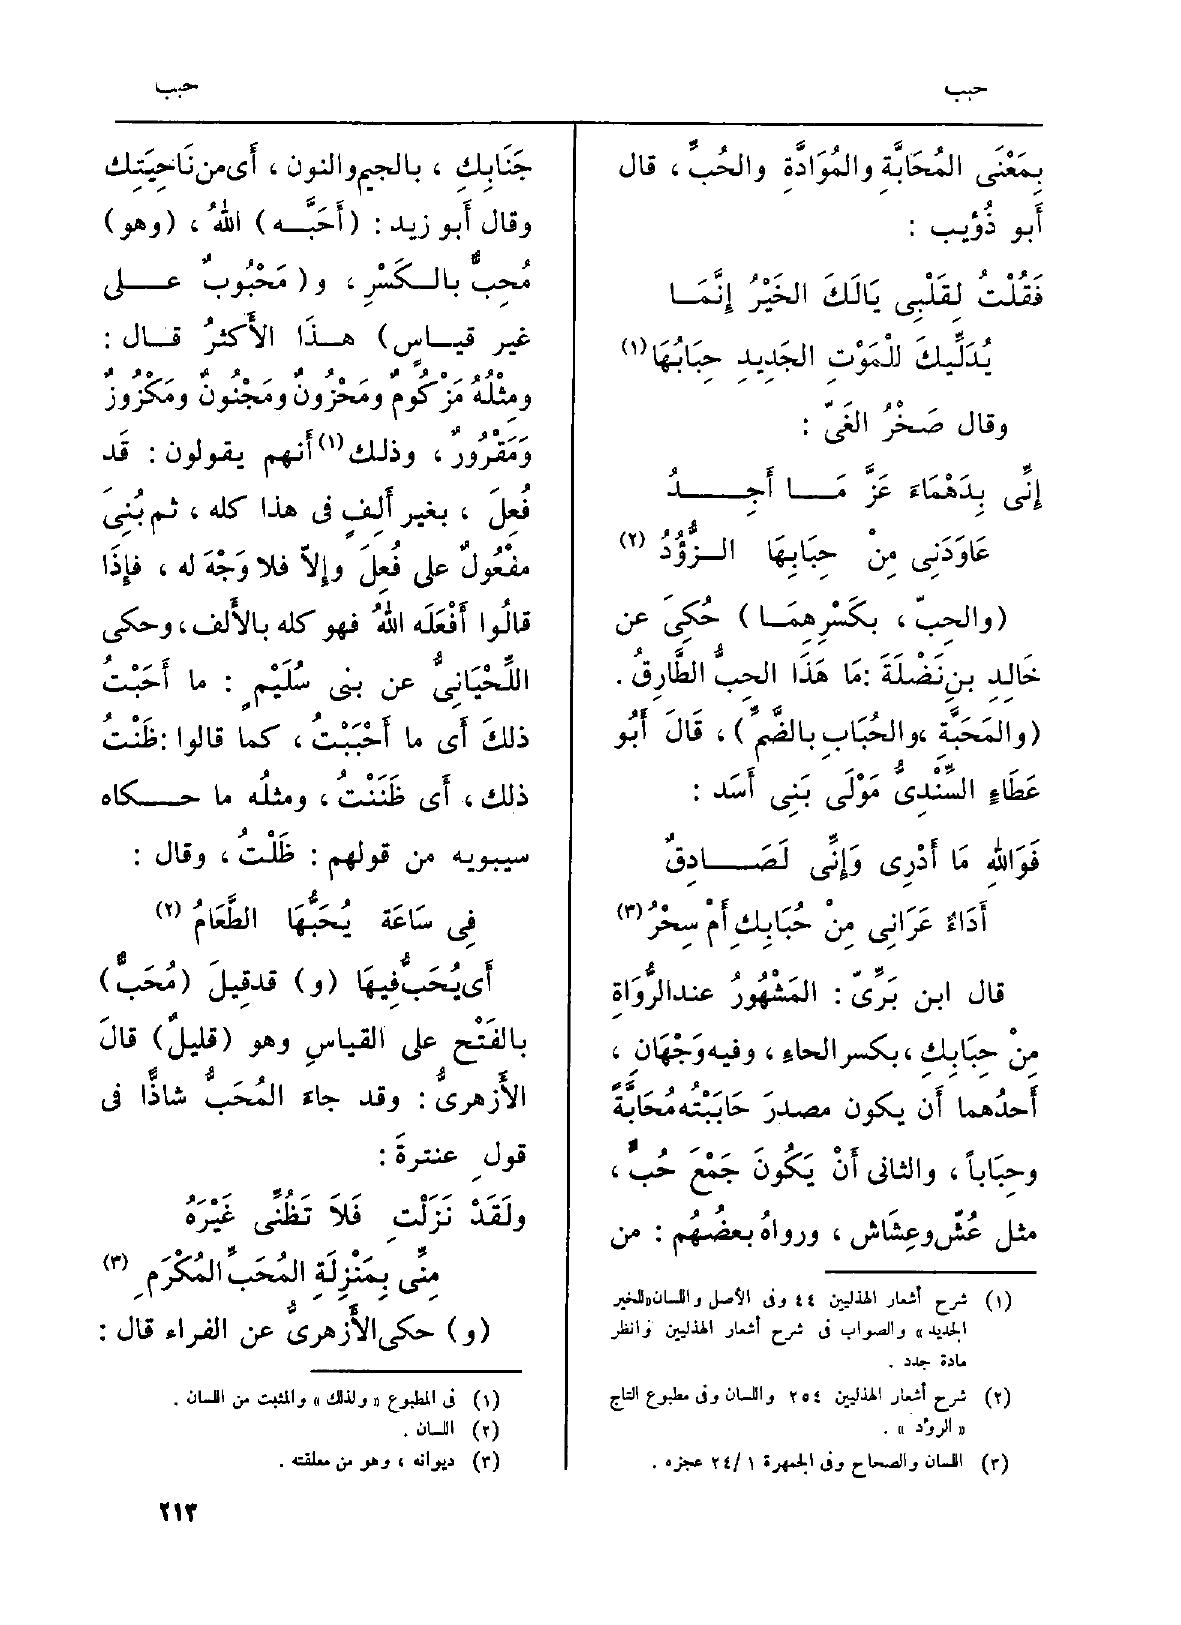 حبب
حبب
بِمَعْنَى المُحَابَّةِ والمُوَادَّةِ والحُبِّ ، قال
أَبو ذُؤَيب :
فَقُلْتُ لِقَلْبِى يَالَكَ الخَيْرُ إِنَّمَـا
يُدَلِّيكَ لِلْمَوْتِ الجَدِيدِ حِبَابُهَا (١)
وقال صَخْرُ الغَىِّ :
إِنِّى بِدَهْمَاءَ عَزَّ مَــا أَجِــدُ
عَاوَدَنِى مِنْ حِبَابِهَا الـزُّؤُدُ (٢)
(والحِبّ ، بكَسْرِهِمَـا) حُكِىَ عن
خَالِدِ بنِ نَضْلَةَ : مَا هَذَا الحِبُّ الطَّارِقُ .
(والمَحَبَّةِ ،والحُبَابِ بالضَّمِّ) ، قَالَ أَبُو
عَطَاءٍ السِّنْدِىُّ مَوْلَى بَنِى أَسَد :
فَوَاللهِ مَا أَدْرِى وَإِنِّى لَصَـــادِقٌ
أَدَاءٌ عَرَانِى مِنْ حُبَابِكِ أَمْ سِحْرُ (٣)
قال ابن بَرِّىّ : المَشْهُورُ عندالرُّوَاةِ
مِنْ حِبَابِكِ ،بكسر الحاءِ ، وفيه وَجْهَانِ ،
أَحدُهما أَن يكون مصدرَ حَابَبْتُه مُحَابَّةً
وحِبَاباً ، والثانى أَنْ يَكُونَ جَمْعَ حُبٍّ ،
مثل عُشٍّ وعِشَاش ، ورواهُ بعضُهُم : من
(١) شرح أشعار الهذليين ٤٤ وفى الأصل واللسان«للخير
الجديد» والصواب فى شرح أشعار الهذليين وانظر
مادة جدد .
(٢) شرح أشعار الهذليين ٢٥٤ واللسان وفى مطبوع التاج
«الرود» .
(٣) اللسان والصحاح وفى الجمهرة ٢٤/١ عجزه .
جَنَابِكِ ، بالجيم والنون ، أَى من نَاحِيَتِك
وقال أَبو زيد : (أَحَبَّــه) اللهُ ، (وهو)
مُحِبٌّ بالـكَسْرِ ، و(مَحْبُوبٌ عــلى
غير قيـاسٍ) هــذَا الأَكثرُ قــال :
ومِثْلُهُ مَزْكُومٌ ومَحْزُونٌ ومَجْنُونٌ ومَكْزُوزٌ
وَمَقْرُورٌ ، وذلك(١)أَنهم يقولون : قَد
فُعِلَ ، بغير أَلِفٍ فى هذا كله ، ثم بُنِىَ
مفْعُولٌ على فُعِلَ وإِلاّ فلا وَجْهَ له ، فإِذَا
قالُوا أَفْعَلَه اللهُ فهو كله بالأَلف ،وحكى
اللِّحْيَانِىُّ عن بنى سُلَيْمٍ : ما أَحَبْتُ
ذلكَ أَى ما أَحْبَبْتُ ، كما قالوا :ظَنْتُ
ذلك ، أَى ظَنَنْتُ ، ومثلُه ما حــكاه
سيبويه من قولهم : ظَلْتُ ، وقال :
فِى سَاعَة يُحَبُّهَا الطَّعَامُ (٢)
أَى يُحَبُّ فِيهَا (و) قدقِيلَ (مُحَبٌّ)
بالفَتْح على القياسِ وهو (قليلٌ) قَالَ
الأَزهرىُّ : وقد جاءَ المُحَبُّ شاذًّا فى
قولِ عنترةَ :
ولَقَدْ نَزَلْتِ فَلاَ تَظُنِّى غَيْرَهُ
مِنِّى بِمَنْزِلَةِ المُحَبِّ المُكْرَمِ (٣)
(و) حكى الأَزهرىُّ عن الفراء قال :
(١) فى المطبوع «ولذلك» والمثبت من اللسان .
(٢) اللسان .
(٣) ديوانه ، وهو من معلقته .
٢١٣